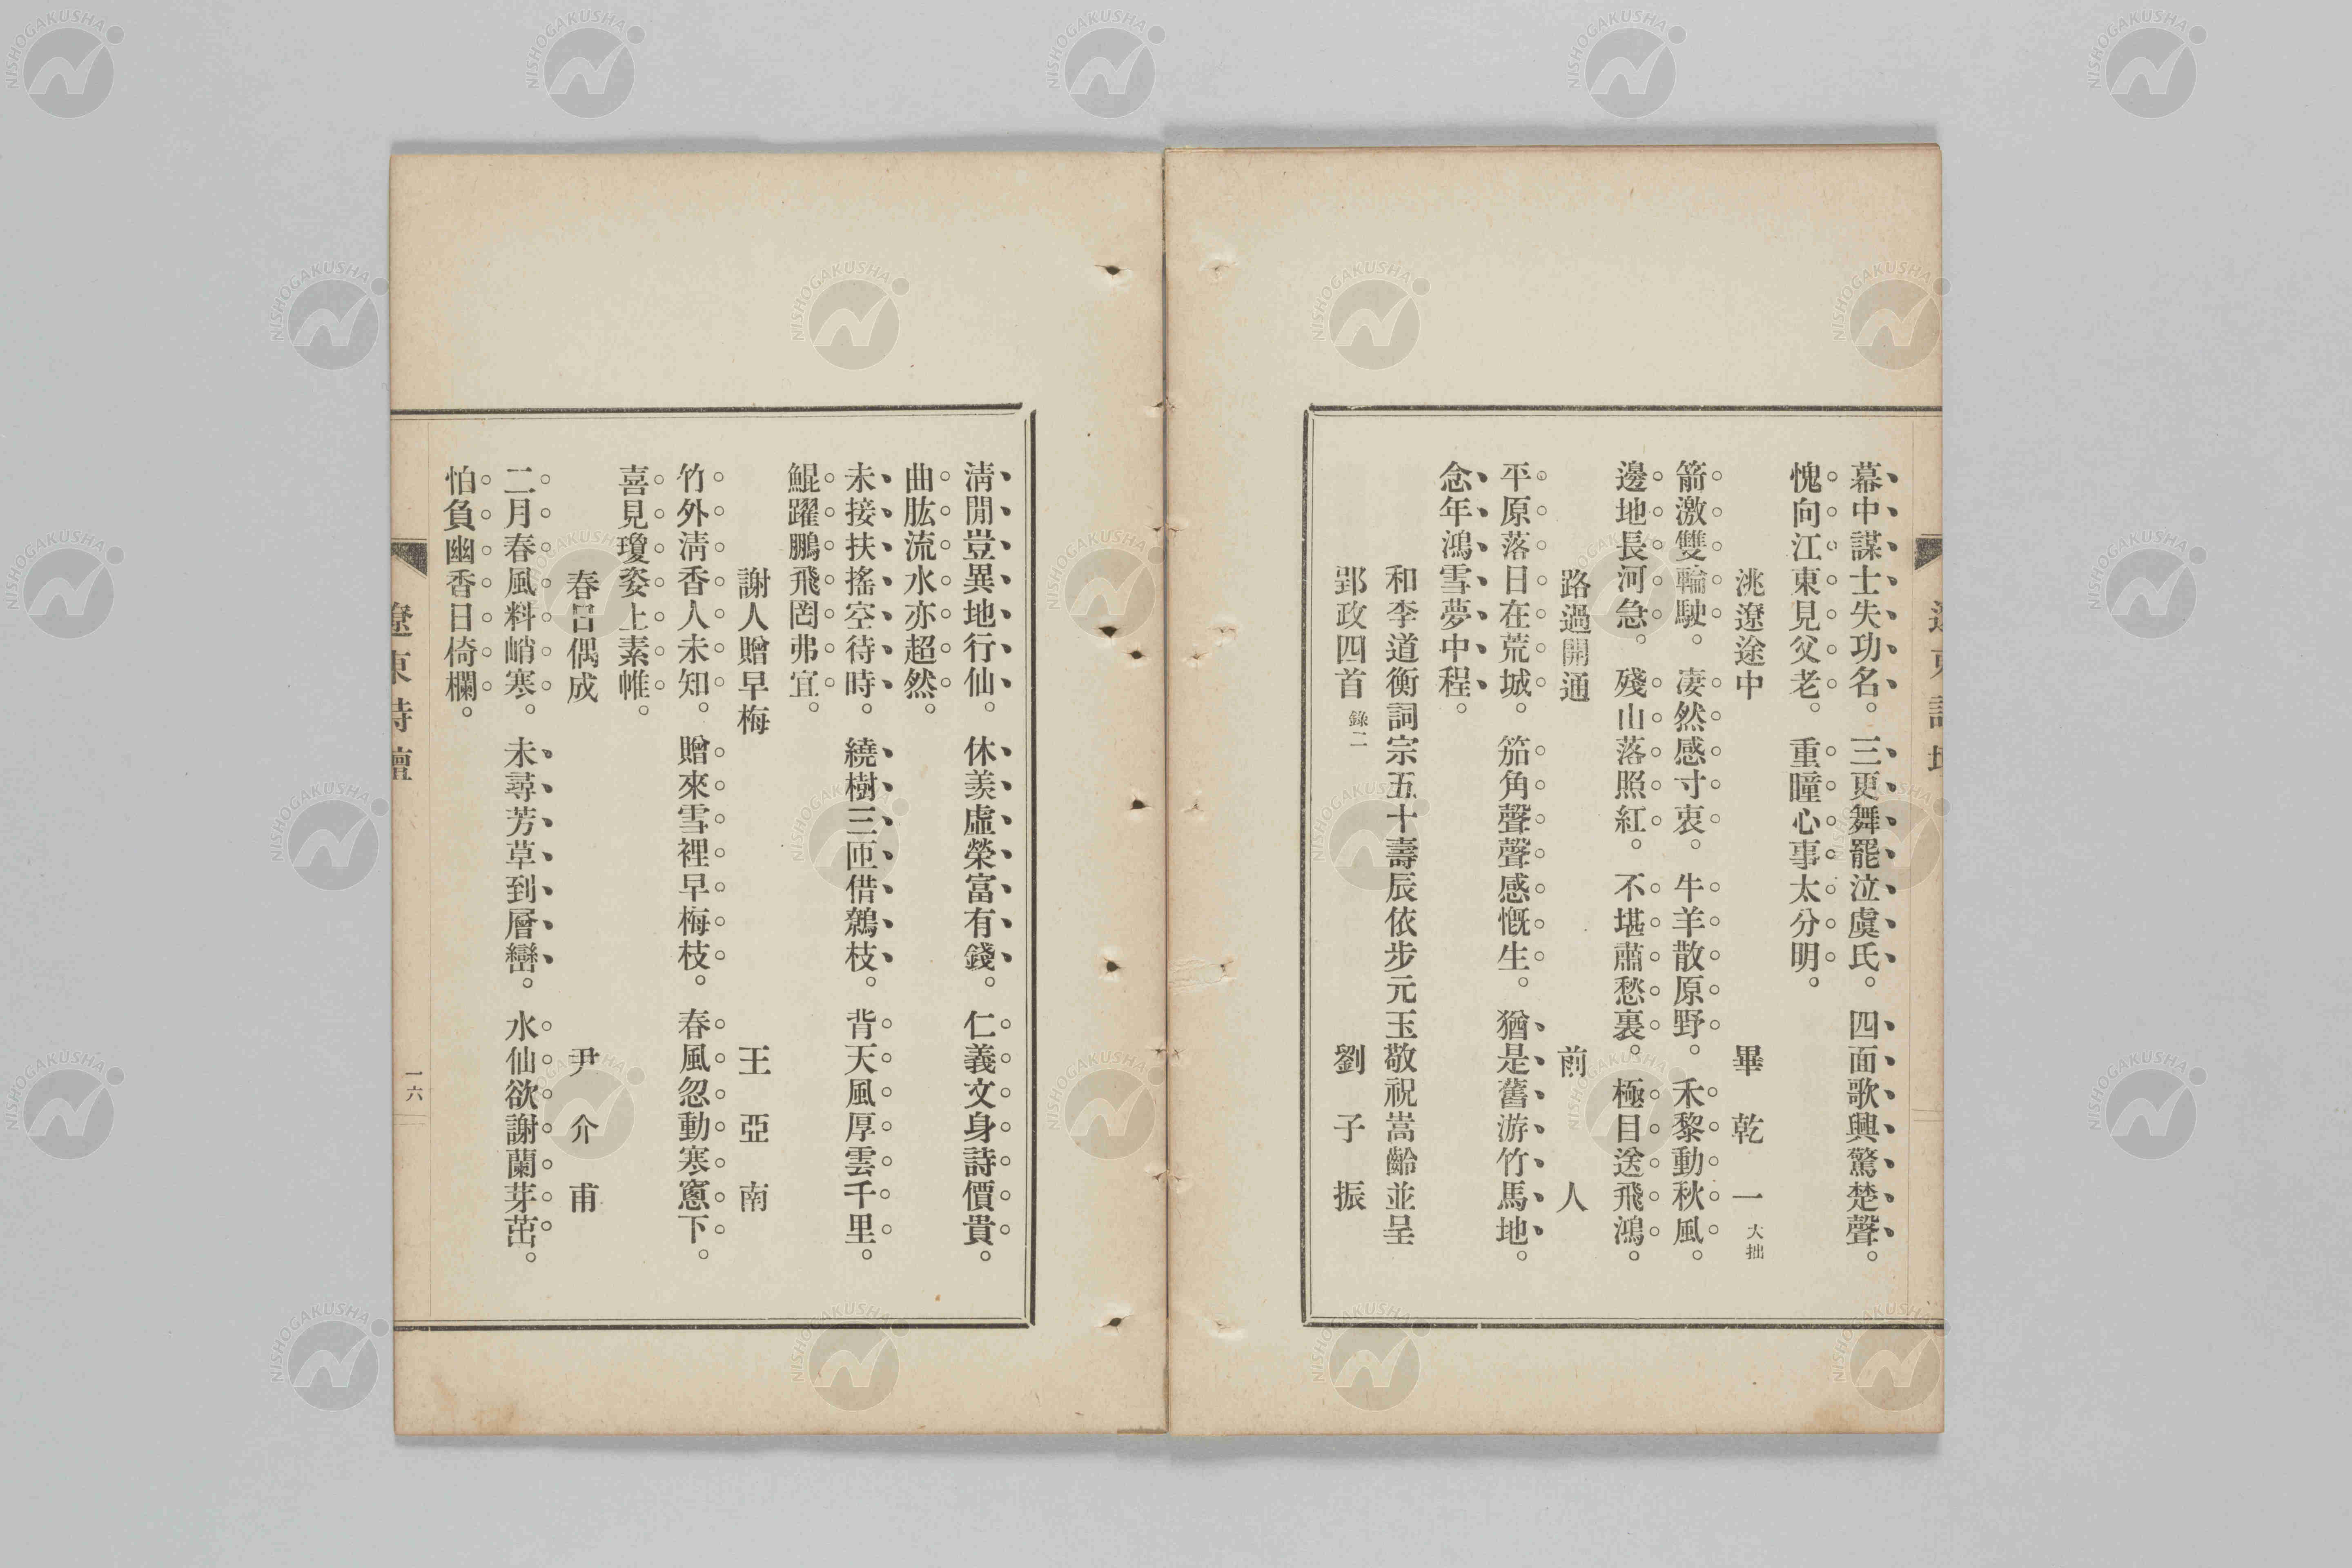 幕中謀士失功名。三更舞罷泣虞氏。四面歌興驚楚聲。
愧向江東見父老。重瞳心事太分明。
洮遼途中　畢乾一大拙
箭激雙輪駛。凄然感寸衷。牛羊散原野。禾黎動秋風。
邊地長河急。殘山落照紅。不堪蕭愁裏。極目送飛鴻。
路過開通　前人
平原落日在荒城。笳角聲聲感慨生。猶是舊游竹馬地。
念年鴻雪夢中程。
和李道衡詞宗五十壽辰依步元玉敬祝嵩齡並呈
郢政四首錄二　劉子振
遼東詩壇
清閒豈異地行仙。休羨虛榮富有錢。仁義文身詩價貴。
曲肱流水亦超然。
未接扶搖空待時。繞樹三匝借鷯枝。背天風厚雲千里。
鯤躍鵬飛罔弗宜。
謝人贈早梅　王亞南
竹外清香人未知。贈來雪裡早梅枝。春風忽動寒窻下。
喜見瓊姿上素帷。
春日偶成　尹介甫
二月春風料峭寒。未尋芳草到層巒。水仙欲謝蘭芽茁。
怕負幽香日椅欄。
遼東詩壇
一六
NISHOGAKUSHA